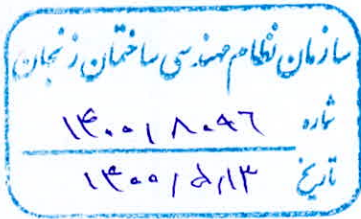 سازمان نظام مهندسی ساختمان زنجان
شماره ۱۴۰۰/۸۰۹۶
تاریخ ۱۴۰۰/۵/۱۳